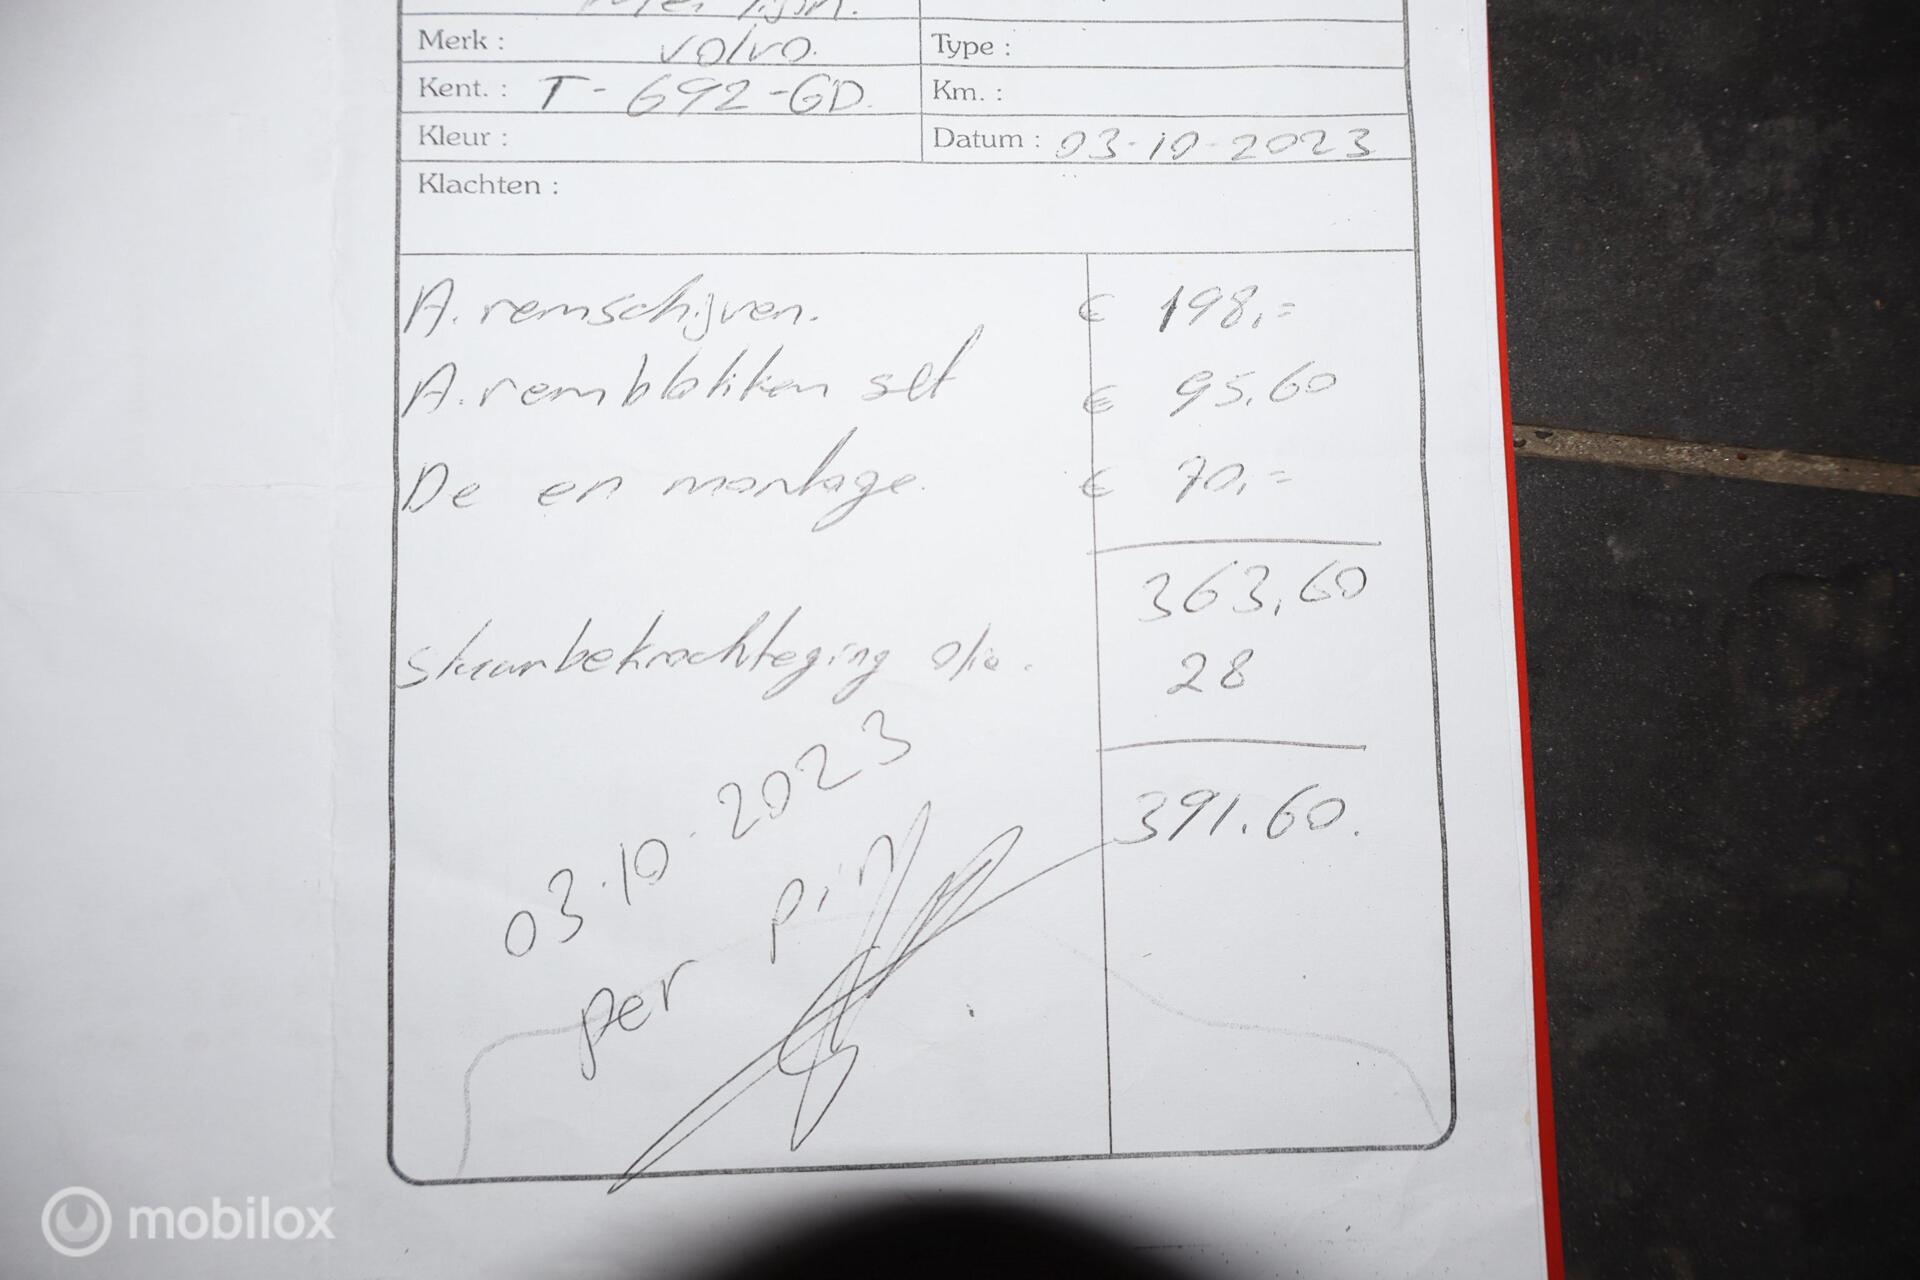 Merk : Volvo. Type :
Kent. : T-692-GD. Km. :
Kleur : Datum : 03-10-2023
Klachten :
A. remschijven. € 198,=
A. remblokken set € 95,60
De en montage. € 70,=
363,60
stuurbekrachteging olie. 28
391.60.
03-10-2023
per pin
mobilox